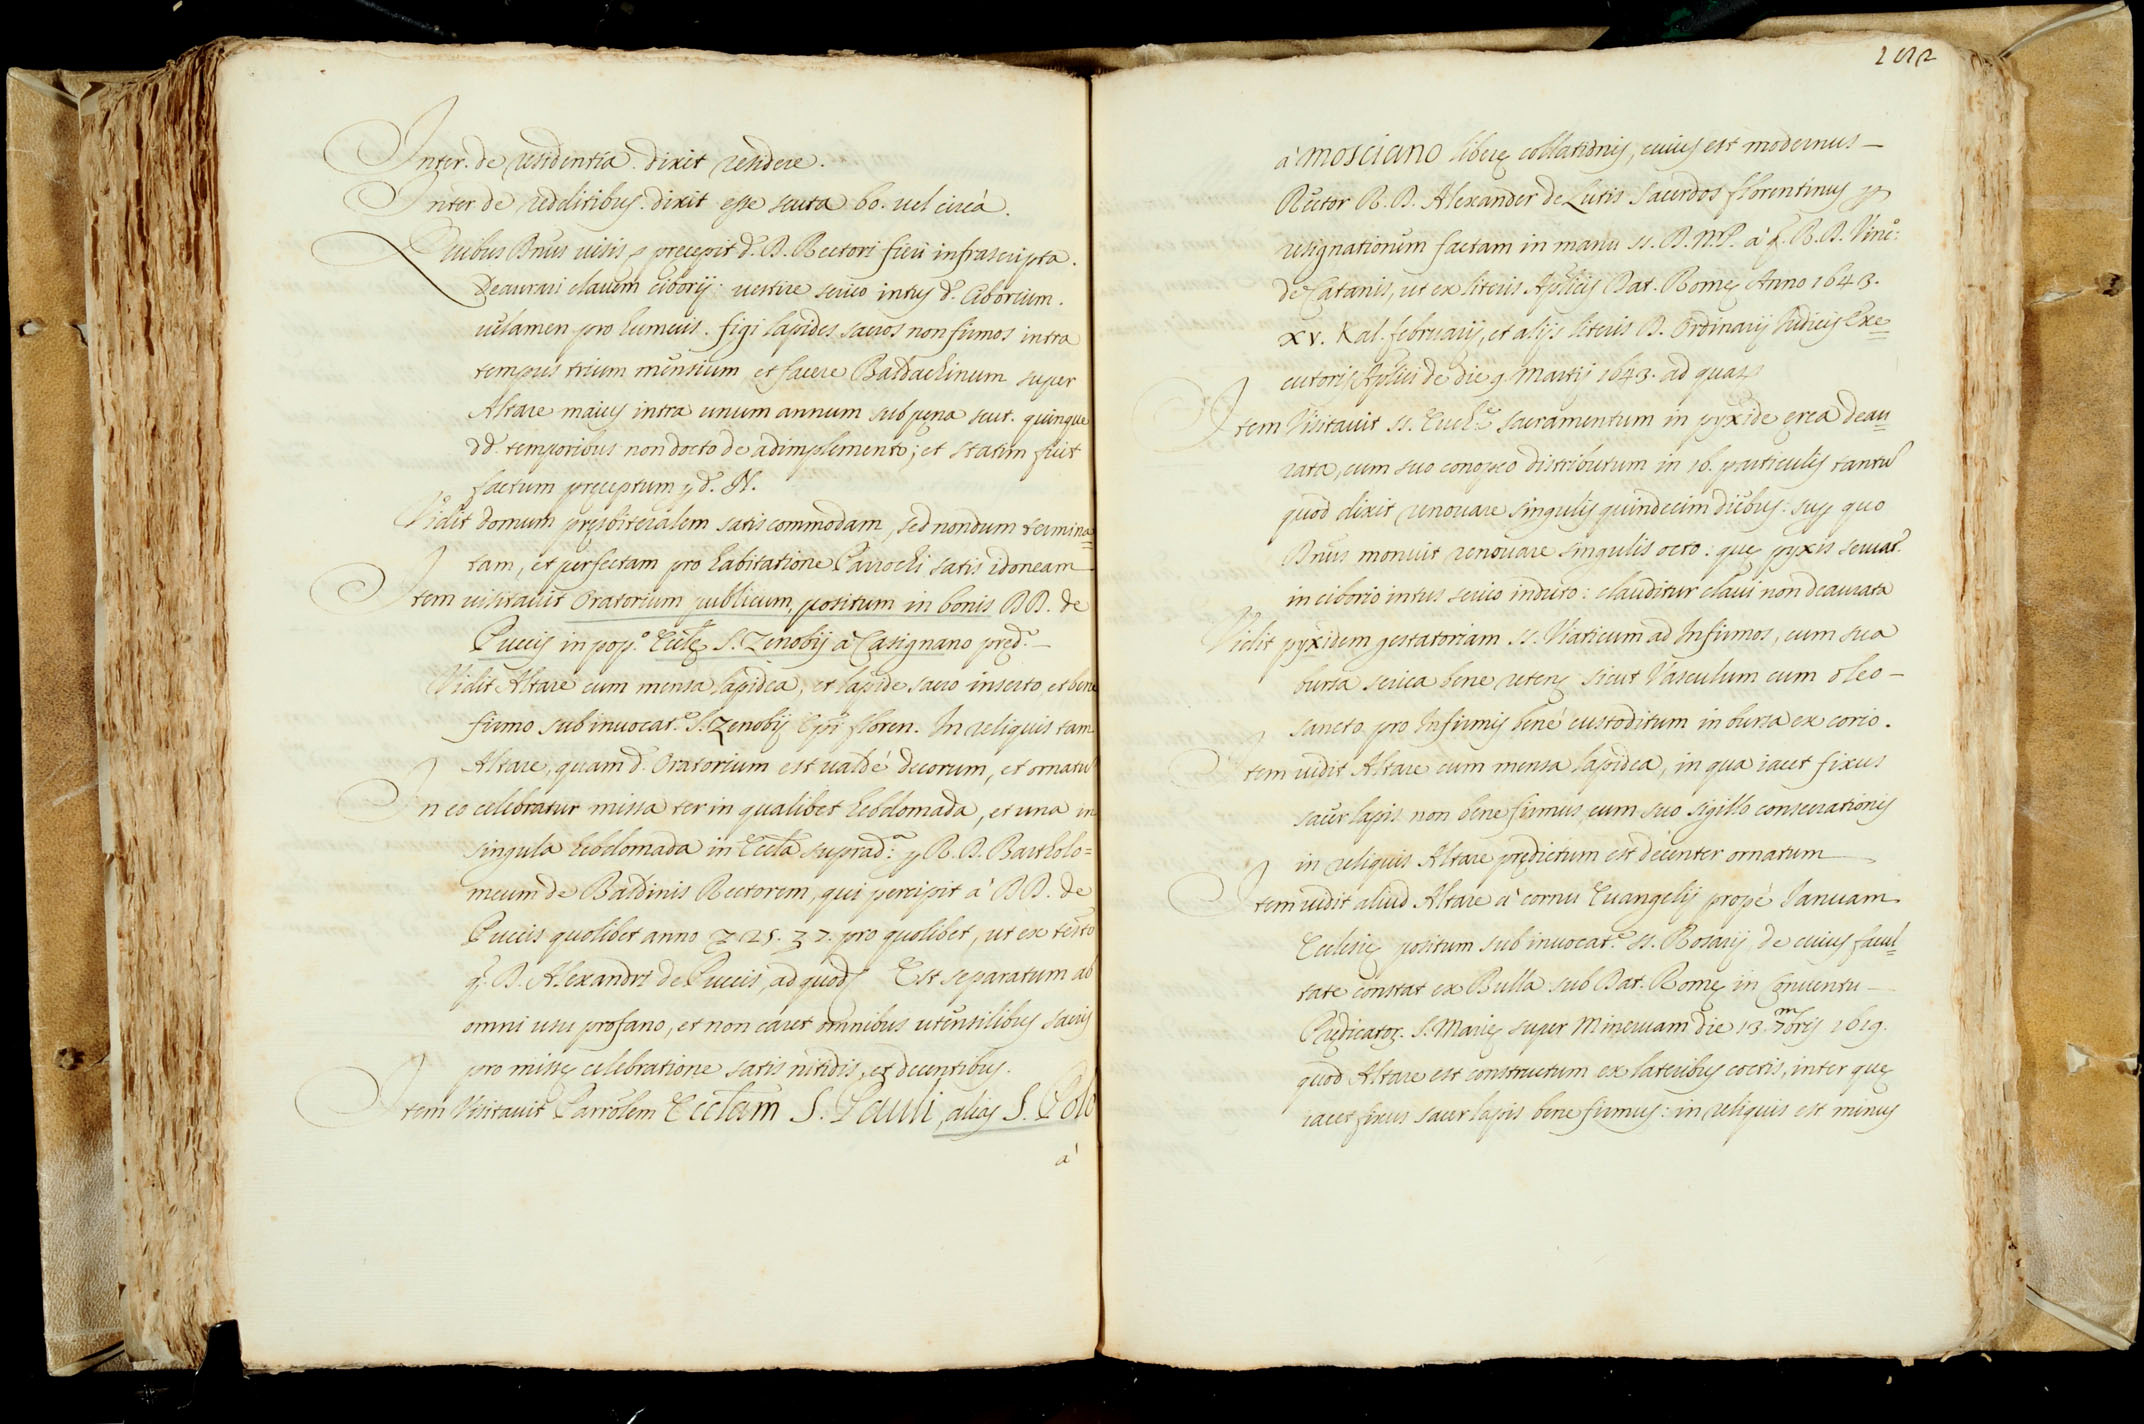 Inter. de residentia. dixit residere.
Inter de redditibus. dixit esse scuta 60. vel circà.
Quibus Dnus visis præcepit d. D. Rectori fieri infrascripta.
Deaurari clavem ciborij: vestire serico intus d. Ciborium.
velamen pro humeris. figi lapides sacros non firmos intra
tempus trium mensium et facere Baldachinum super
Altare maius intra unum annum sub pena scut. quinque
dd. temporibus non docto de adimplemento; et statim fuit
factum preceptum p d. N.
Vidit domum presbiteralem satis commodam, sed nondum termina=
tam, et perfectam pro habitatione Parrochi satis idoneam
Item visitavit Oratorium publicum, positum in bonis DD. de
Puccis in pop.º Ecclę S. Zenobij à Casignano pred.º
Vidit Altare cum mensa lapidea, et lapide sacro inserto, et bene
firmo sub invocat.e S. Zenobij Epi floren. In reliquis tam
Altare, quam d. Oratorium est valdé decorum, et ornatu
In eo celebratur missa ter in qualibet hebdomada, et una in
singula hebdomada in Eccla suprad.a p R. D. Bartholo=
meum de Baldinis Rectorem, qui percipit à DD. de
Puccis quolibet anno 25. 37. pro quolibet, ut ex testo
q. D. Alexandri de Puccis, ad quod Est separatum ab
omni usu profano, et non caret omnibus utensilibus sacris
pro missę celebratione satis nitidis, et decentibus.
Item Visitavit Parrolem Ecclam S. Pauli, alias S. Polo
à
1022
à Mosciano liberę collationis, cuius est modernus
Rector R. D. Alexander de Lutis Sacerdos florentinus p
resignationem factam in manu ss. D. N. P. à q. R. D. Vinc:
de Catanis, ut ex literis Aplicis Dat. Romę Anno 1643.
XV. Kal. februarij, et alijs literis D. Ordinarij Iudicis Exe=
cutoris Aplici de die 9 Martij 1643. ad quas
Item Visitavit ss. Euch.e sacramentum in pyxide ęrea deau=
rata, cum suo conopeo distributum in 16. particulis tantu
quod dixit renovare singulis quindecim diebus: sup quo
Dnus monuit renovare singulis octo: quę pyxis servat.
in ciborio intus serico induto: clauditur clavi non deaurata
Vidit pyxidem gestatoriam ss. Viaticum ad Infirmos, cum sua
bursa serica bene retenę sicut Vasculum cum oleo
sancto pro Infirmis bené custoditum in bursa ex corio.
Item vidit Altare cum mensa lapidea, in qua iacet fixus
sacer lapis non bene firmus, cum suo sigillo consecrationis
in reliquis Altare prędictum est decenter ornatum
Item vidit aliud Altare à cornu Euangelij propè Ianuam
Ecclesię positum sub invocat.e ss. Rosarij, de cuius facul=
tate constat ex Bulla sub Dat. Romę in Conventu
Prędicator. S. Marię super Minervam die 13. 7bris 1619.
quod Altare est constructum ex lateribus coctis, inter quę
iacet fixus sacer lapis bene firmus: in reliquis est minus